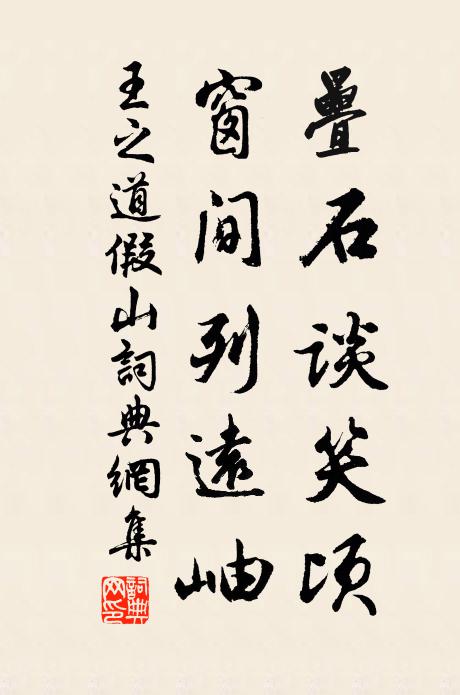 疊石談笑頃
窗間列遠岫
王之道假山詞典網集
詞典網印